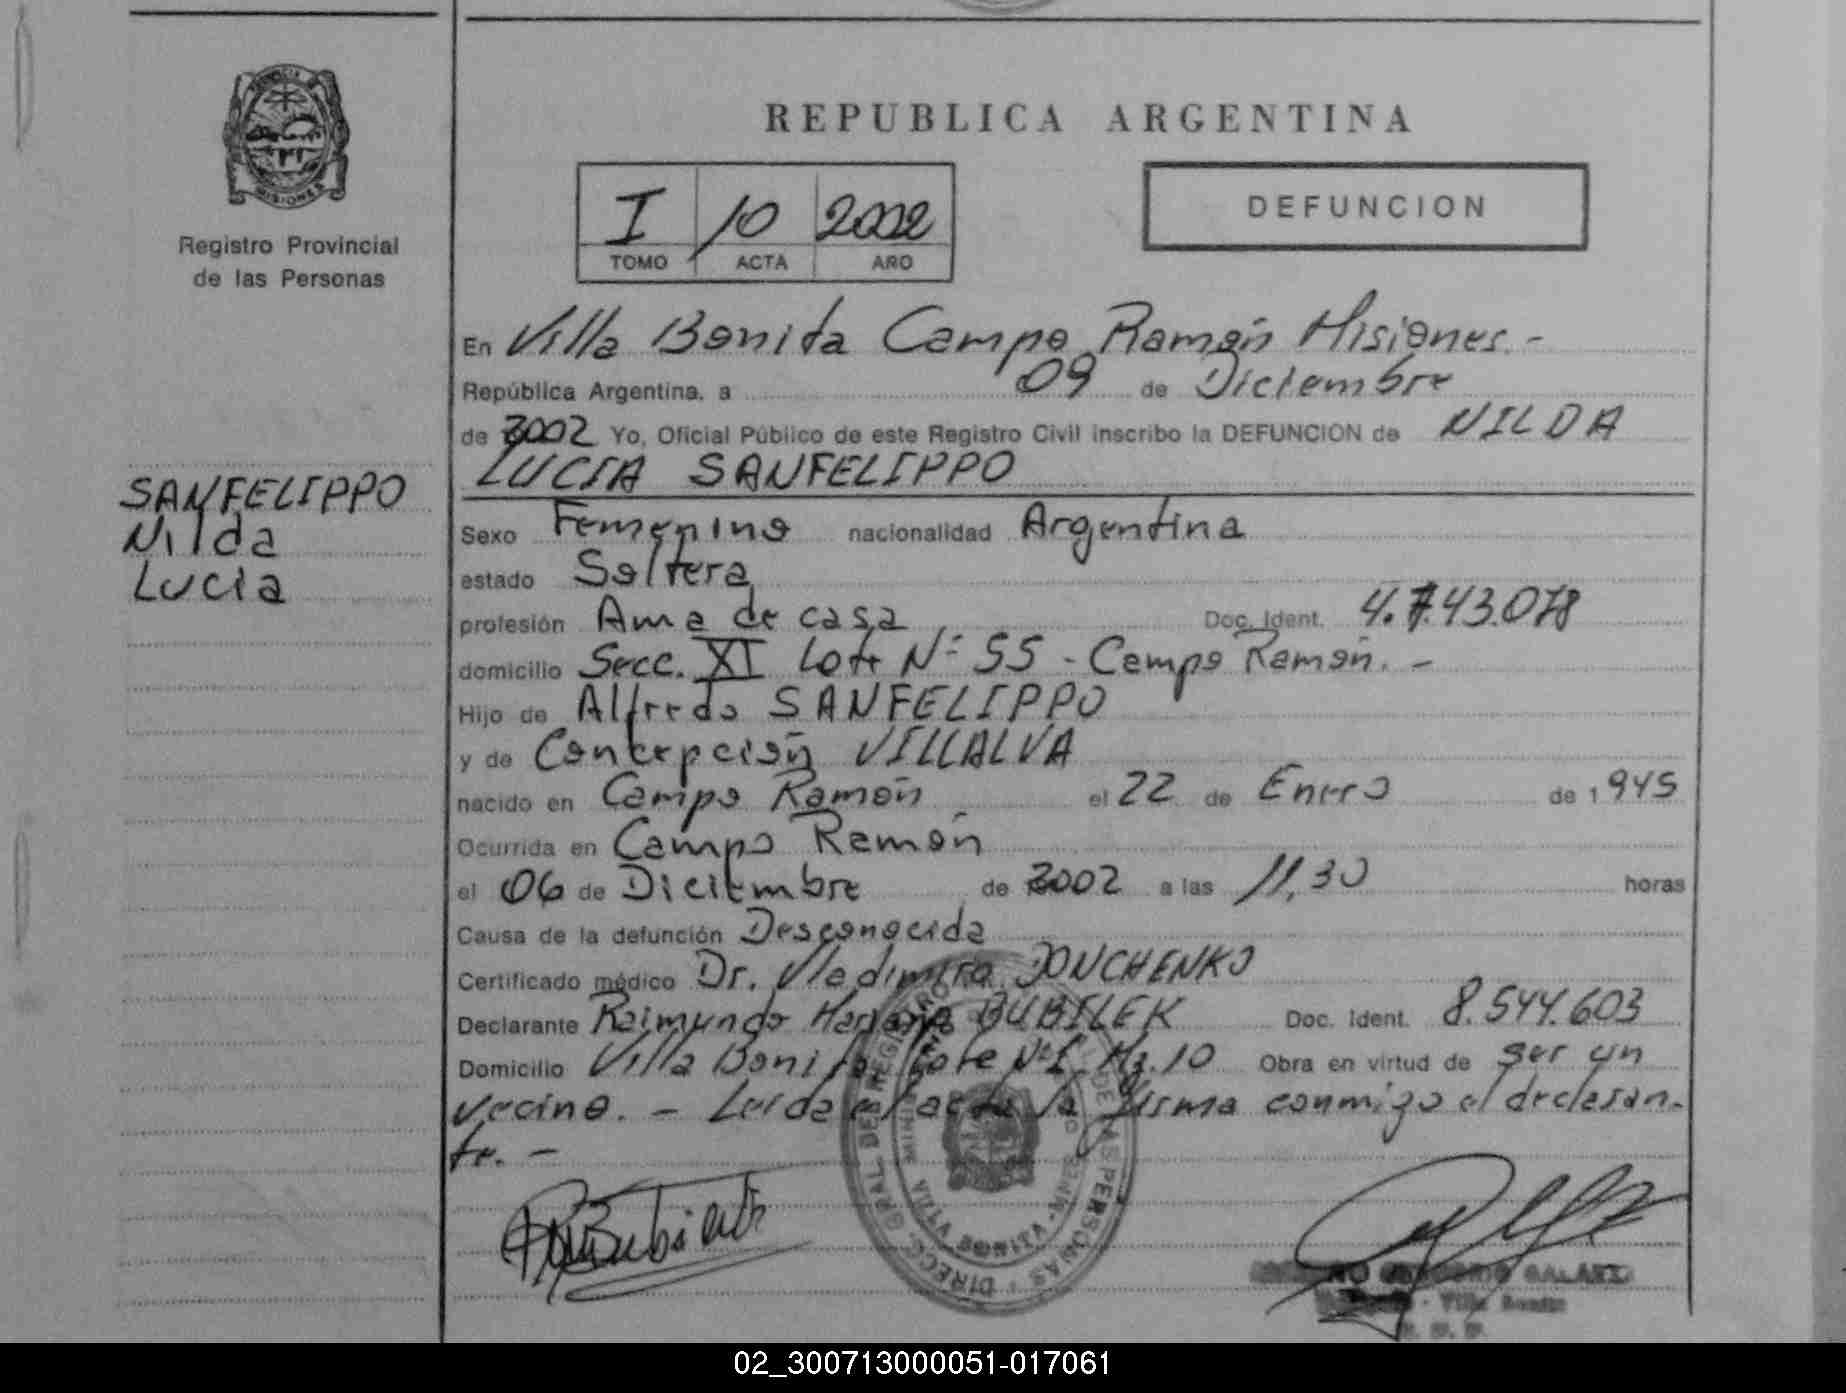 MISIONES
Registro Provincial
de las Personas
SANFELIPPO
Nilda
Lucia
REPUBLICA ARGENTINA
I 10 2002
TOMO ACTA AÑO
DEFUNCION
En Villa Bonita Campo Ramón Misiones.-
República Argentina, a 09 de Diciembre
de 2002 Yo, Oficial Público de este Registro Civil inscribo la DEFUNCION de NILDA
LUCIA SANFELIPPO
Sexo Femenino nacionalidad Argentina
estado Soltera
profesión Ama de casa Doc. Ident. 4.743.078
domicilio Secc. XI Lote Nº 55 - Campo Ramón. -
Hijo de Alfredo SANFELIPPO
y de Concepción VILLALVA
nacido en Campo Ramón el 22 de Enero de 1945
Ocurrida en Campo Ramón
el 06 de Diciembre de 2002 a las 11,30 horas
Causa de la defunción Desconocida
Certificado médico Dr. Vladimiro JONCHENKO
Declarante Raimundo Mariano BUBILEK Doc. Ident. 8.544.603
Domicilio Villa Bonita Lote Nº 1 Mz. 10 Obra en virtud de ser un
vecino. - Leída el acta la firma conmigo el declaran-
te. -
DIRECC. GRAL. DEL REGISTRO DE LAS PERSONAS
VILLA BONITA - MISIONES
GREGORIO GALARZA
Villa Bonita
02_300713000051-017061